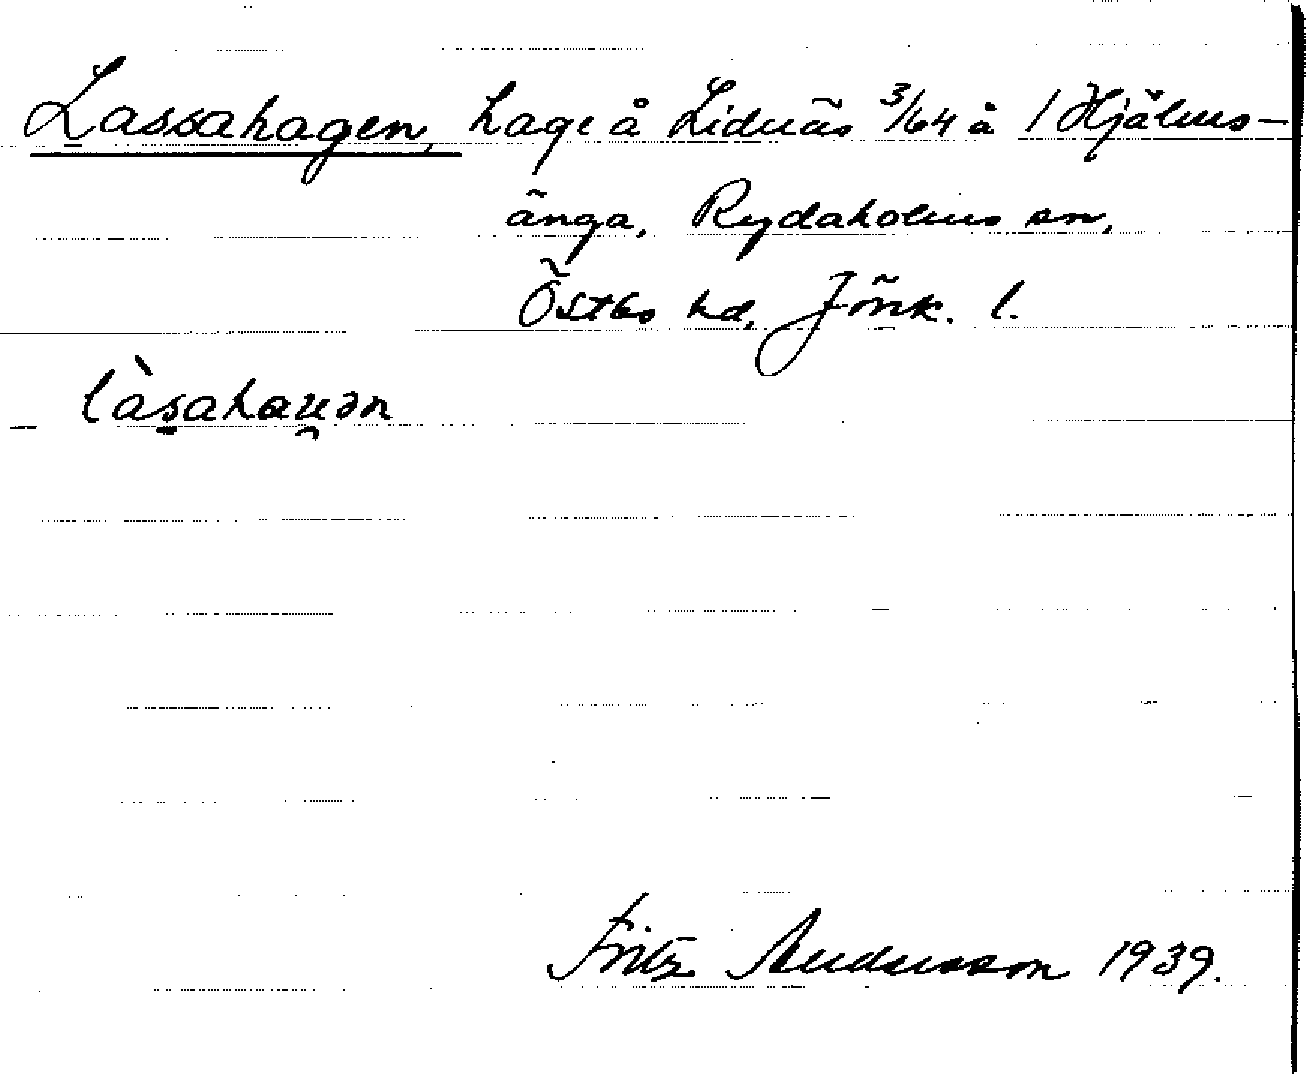 Lassahagen, hage å Lidnäs 3/64 å 1 Hjälms-
änga, Rydaholms sn,
Östbo hd, Jönk. l.
làsahau̯ən
Fritz Andersson 1939.